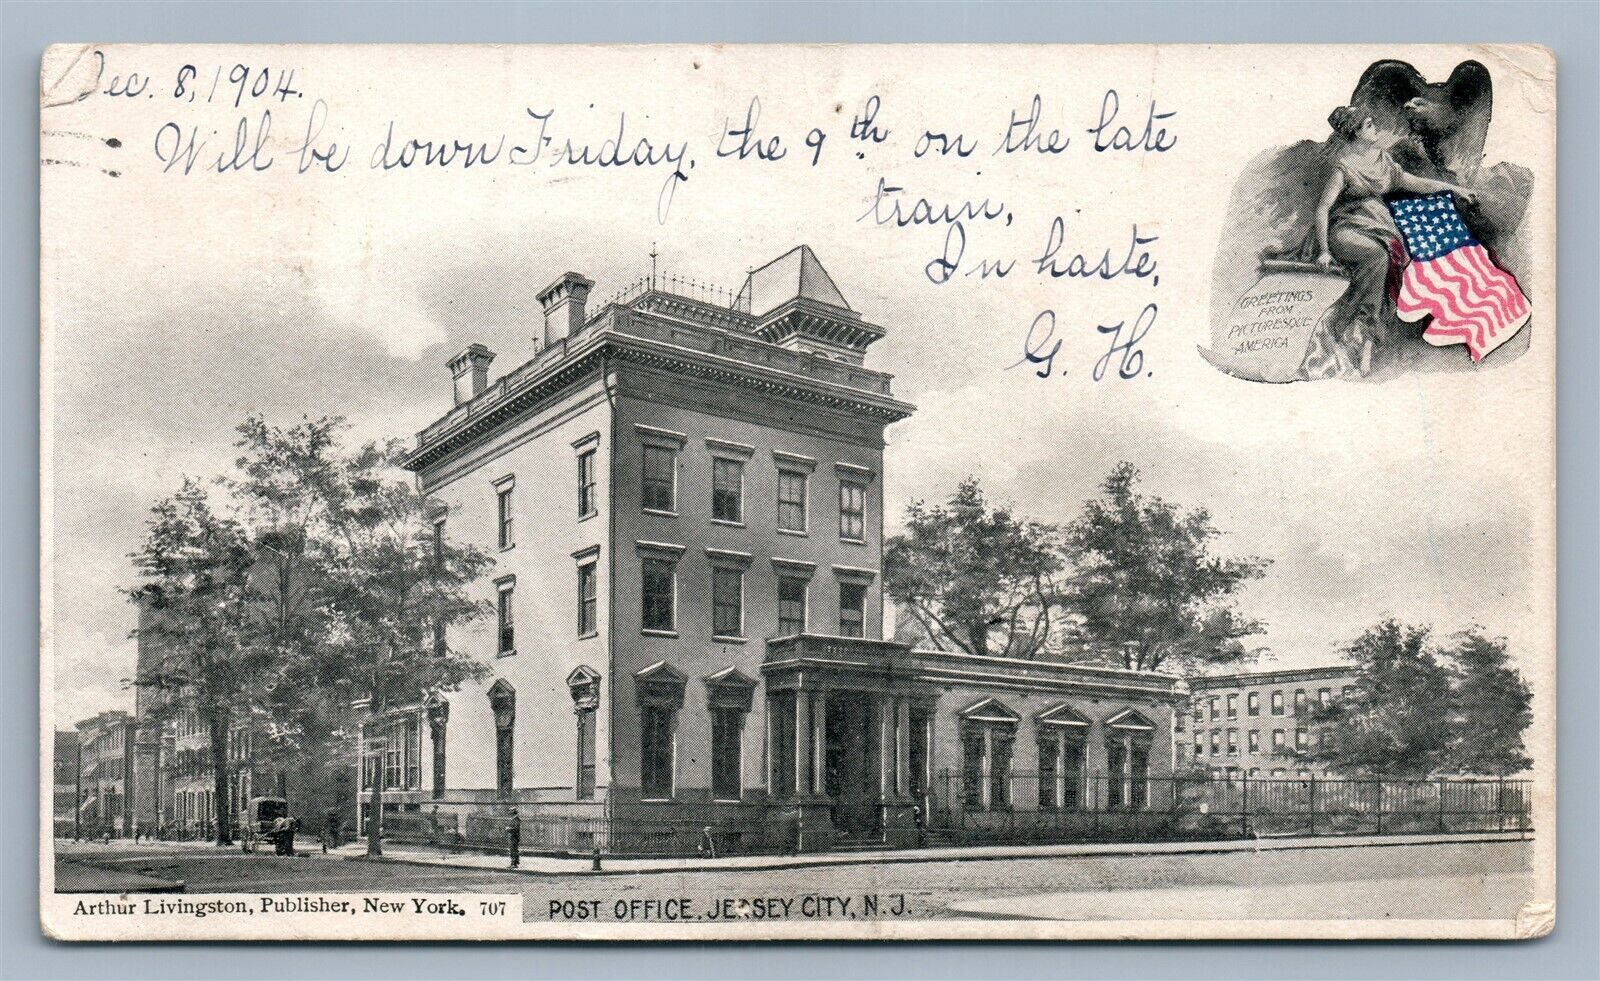 Dec. 8, 1904.
Will be down Friday, the 9th on the late
train,
In haste,
G. H.
GREETINGS
FROM
PICTURESQUE
AMERICA
Arthur Livingston, Publisher, New York. 707
POST OFFICE, JERSEY CITY, N.J.